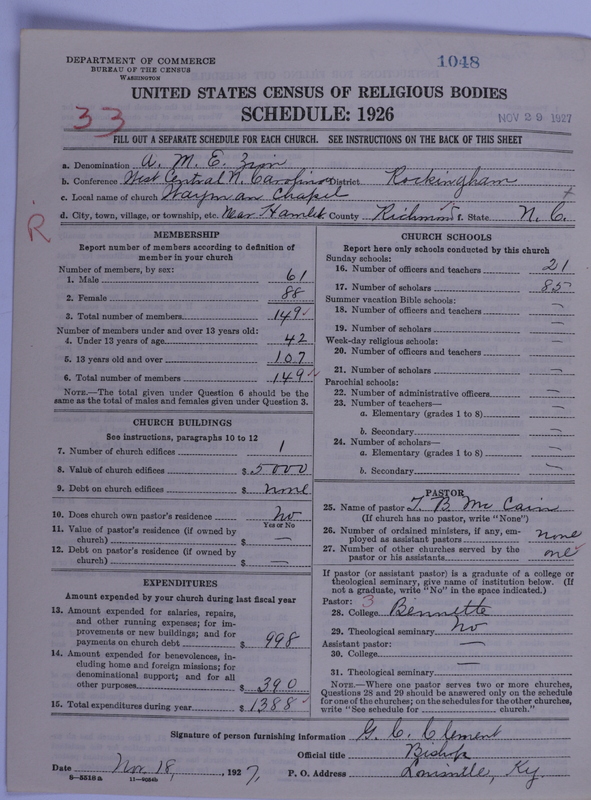 DEPARTMENT OF COMMERCE
BUREAU OF THE CENSUS
WASHINGTON
1048
UNITED STATES CENSUS OF RELIGIOUS BODIES
SCHEDULE: 1926
NOV 29 1927
33
FILL OUT A SEPARATE SCHEDULE FOR EACH CHURCH. SEE INSTRUCTIONS ON THE BACK OF THIS SHEET
a. Denomination A. M. E. Zion
b. Conference West Central N. Carolina District Rockingham
c. Local name of church Wayman Chapel
d. City, town, village, or township, etc. Near Hamlet County Richmond f. State N. C.
R
MEMBERSHIP
Report number of members according to definition of
member in your church
Number of members, by sex:
1. Male 61
2. Female 88
3. Total number of members 149
Number of members under and over 13 years old:
4. Under 13 years of age 42
5. 13 years old and over 107
6. Total number of members 149
NOTE.—The total given under Question 6 should be the
same as the total of males and females given under Question 3.
CHURCH BUILDINGS
See instructions, paragraphs 10 to 12
7. Number of church edifices 1
8. Value of church edifices $ 5000
9. Debt on church edifices $ none
10. Does church own pastor's residence No
Yes or No
11. Value of pastor's residence (if owned by
church) $ —
12. Debt on pastor's residence (if owned by
church) $ —
EXPENDITURES
Amount expended by your church during last fiscal year
13. Amount expended for salaries, repairs,
and other running expenses; for im-
provements or new buildings; and for
payments on church debt $ 998
14. Amount expended for benevolences, in-
cluding home and foreign missions; for
denominational support; and for all
other purposes $ 390
15. Total expenditures during year $ 1388
CHURCH SCHOOLS
Report here only schools conducted by this church
Sunday schools:
16. Number of officers and teachers 21
17. Number of scholars 85
Summer vacation Bible schools:
18. Number of officers and teachers —
19. Number of scholars —
Week-day religious schools:
20. Number of officers and teachers —
21. Number of scholars —
Parochial schools:
22. Number of administrative officers —
23. Number of teachers—
a. Elementary (grades 1 to 8) —
b. Secondary —
24. Number of scholars—
a. Elementary (grades 1 to 8) —
b. Secondary —
PASTOR
25. Name of pastor T. B. McCain
(If church has no pastor, write "None")
26. Number of ordained ministers, if any, em-
ployed as assistant pastors none
27. Number of other churches served by the
pastor or his assistants one
If pastor (or assistant pastor) is a graduate of a college or
theological seminary, give name of institution below. (If
not a graduate, write "No" in the space indicated.)
Pastor: 3
28. College Bennette
29. Theological seminary No
Assistant pastor: —
30. College —
31. Theological seminary
NOTE.—Where one pastor serves two or more churches,
Questions 28 and 29 should be answered only on the schedule
for one of the churches; on the schedules for the other churches,
write "See schedule for church."
Signature of person furnishing information G. C. Clement
Official title Bishop
Date Nov. 18, 1927, P. O. Address Louisville, Ky.
8—5516a 11—9064b